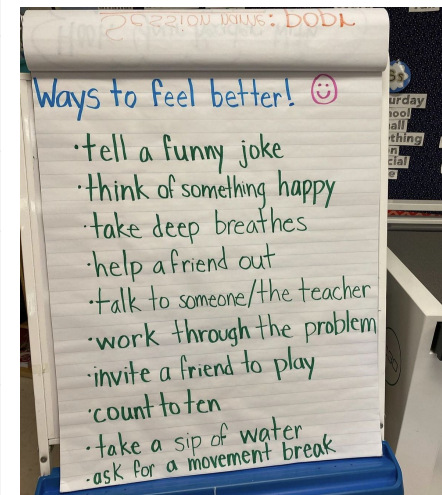 Session name: popr
Ways to feel better!
·tell a funny joke
·think of something happy
·take deep breathes
·help a friend out
·talk to someone/the teacher
·work through the problem
·invite a friend to play
·count to ten
·take a sip of water
·ask for a movement break
urday
ool
all
thing
n
cial
e